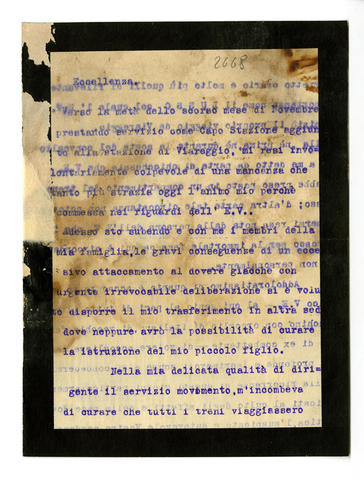 2668
Eccellenza.
Verso la metà dello scorso mese di Novembre
prestando servizio come Capo Stazione aggiun
to alla stazione di Viareggio, mi resi invo=
lontariamente colpevole di una mancanza che
tanto più strazia oggi l'animo mio perchè
commessa nei riguardi dell'E.V..
Adesso sto subendo e con me i membri della
mia famiglia, le gravi conseguenze di un ecces
sivo attaccamento al dovere giacchè con
urgente irrevocabile deliberazione si è volu
to disporre il mio trasferimento in altra sede
dove neppure avrò la possibilità di curare
la istruzione del mio piccolo figlio.
Nella mia delicata qualità di diri=
gente il servizio movimento, m'incombeva
di curare che tutti i treni viaggiassero